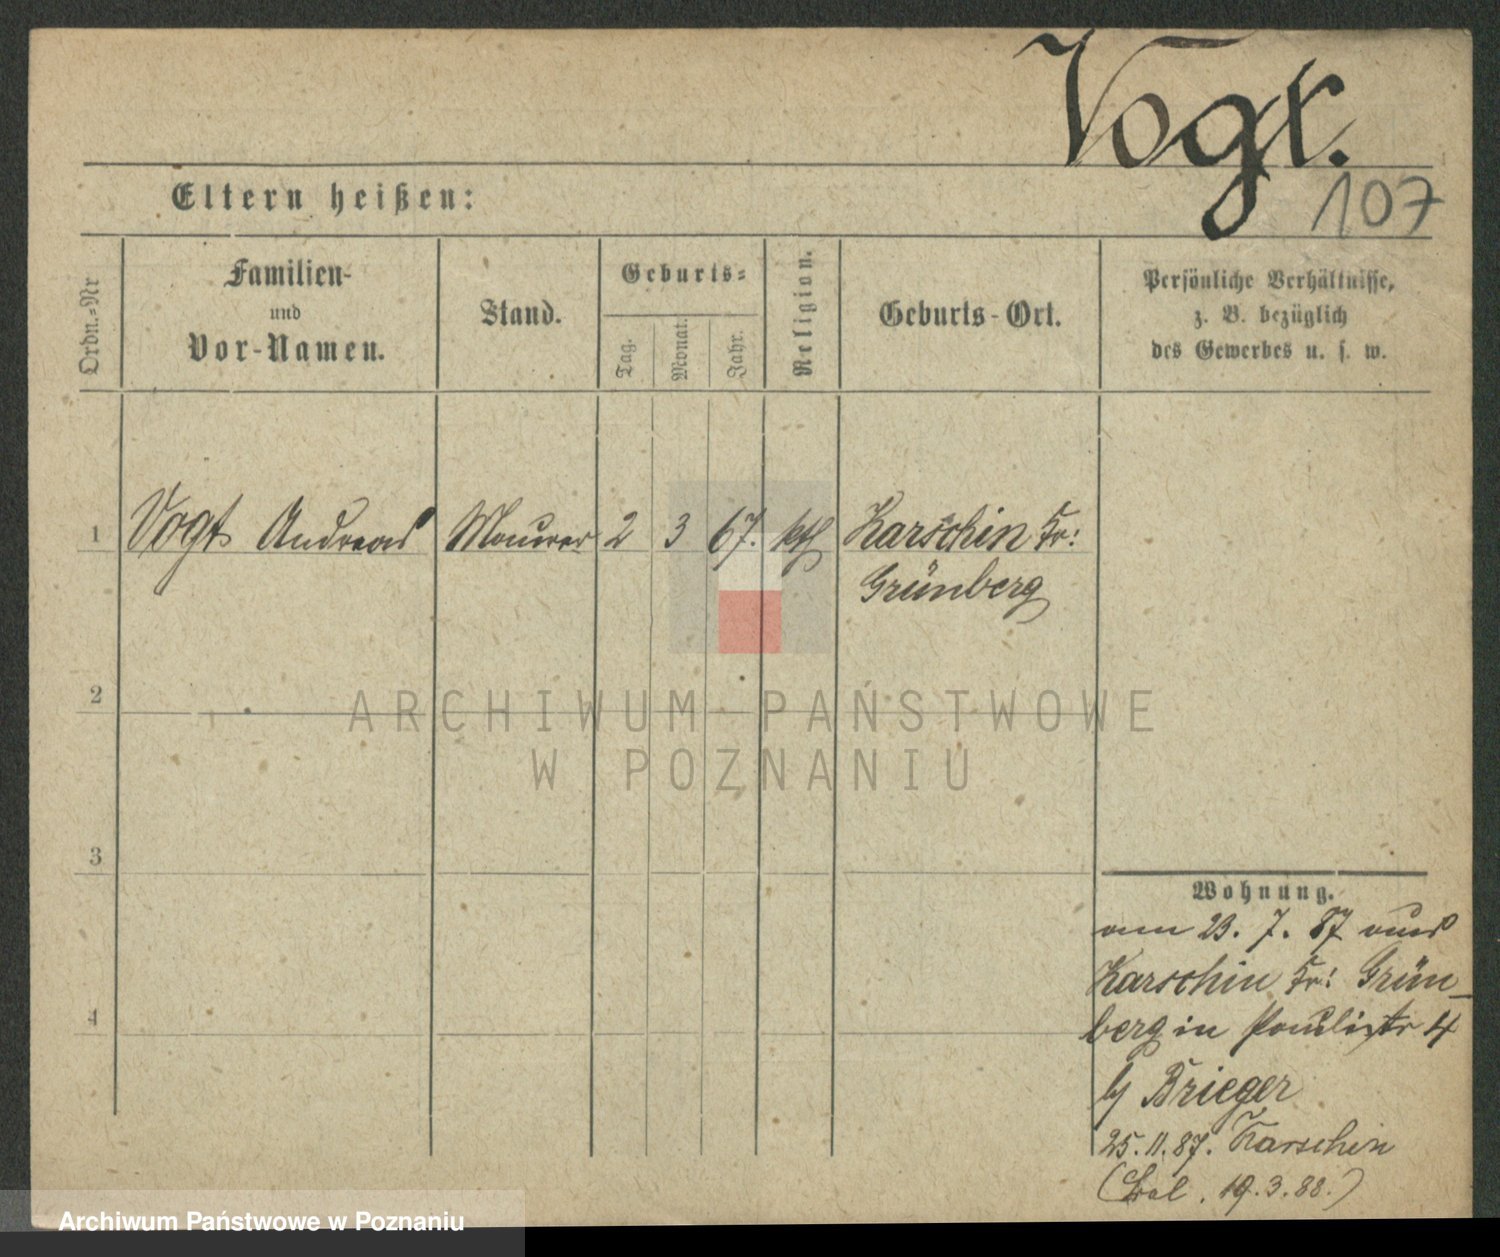 Vogt.
107
Eltern heißen:
Ordn.=Nr
Familien-
und
Vor-Namen.
Stand.
Geburts=
Tag.
Monat.
Jahr.
Religion.
Geburts-Ort.
Persönliche Verhältnisse,
z. B. bezüglich
des Gewerbes u. s. w.
1 Vogt Andreas Maurer 2 3 67. kth Karschin Kr:
Grünberg
2
3
4
ARCHIWUM PAŃSTWOWE
W POZNANIU
Wohnung.
am 23. 7. 87 aus
Karschin Kr: Grün-
berg in Paulistr 4
b/ Brieger
25. 11. 87. Karschin
19. 3. 88.)
Archiwum Państwowe w Poznaniu